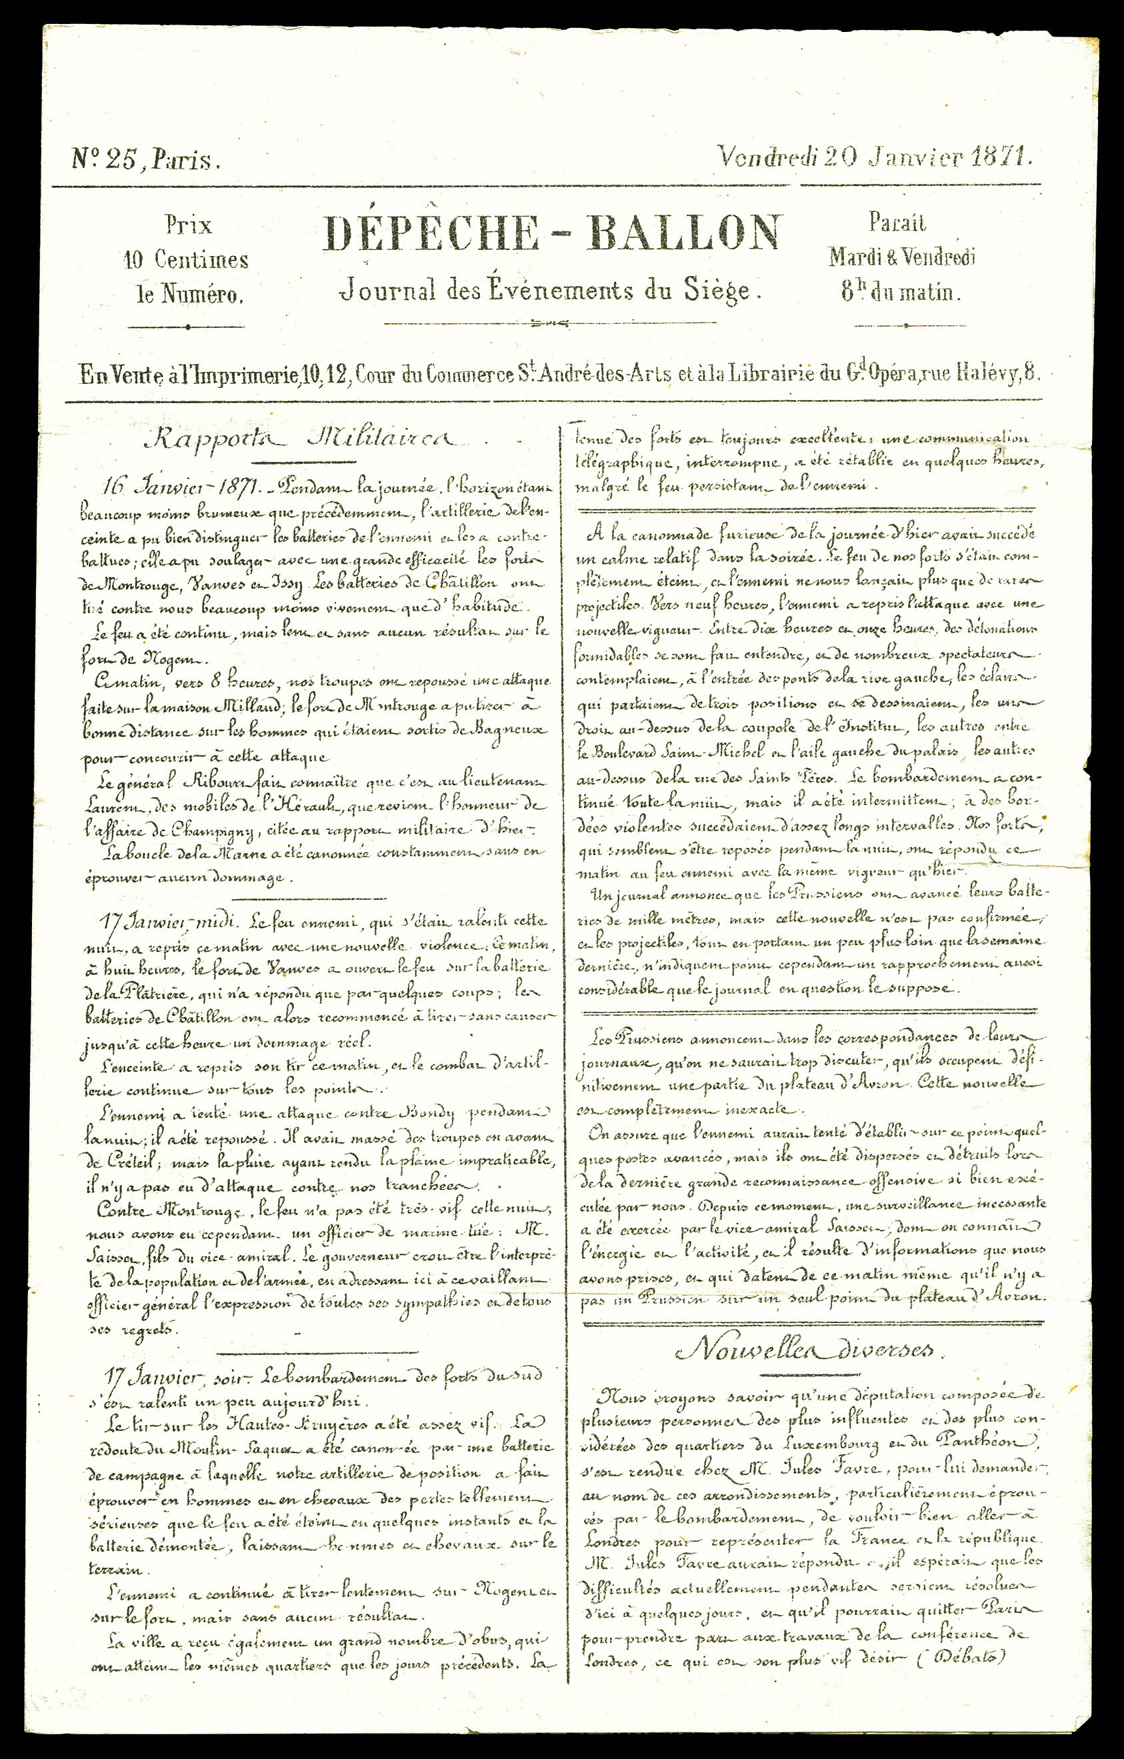 Nº 25, Paris.
Vendredi 20 Janvier 1871.
Prix
10 Centimes
le Numéro.
DÉPÊCHE - BALLON
Journal des Événements du Siège.
Parait
Mardi & Vendredi
8h du matin.
En Vente à l'Imprimerie, 10, 12, Cour du Commerce St. André-des-Arts et à la Librairie du Gd. Opéra, rue Halévy, 8.
Rapports Militaires
16 Janvier 1871. - Pendant la journée, l'horizon étant
beaucoup moins brumeux que précédemment, l'artillerie de l'en-
ceinte a pu bien distinguer les batteries de l'ennemi et les a contre-
battues; elle a pu soulager avec une grande efficacité les forts
de Montrouge, Vanves et Issy. Les batteries de Châtillon ont
tiré contre nous beaucoup moins vivement que d'habitude.
Le feu a été continu, mais lent et sans aucun résultat sur le
fort de Nogent.
Ce matin, vers 8 heures, nos troupes ont repoussé une attaque
faite sur la maison Millaud; le fort de Montrouge a pu tirer à
bonne distance sur les hommes qui étaient sortis de Bagneux
pour concourir à cette attaque
Le général Ribourt fait connaître que c'est au lieutenant
Laurent, des mobiles de l'Hérault, que revient l'honneur de
l'affaire de Champigny, citée au rapport militaire d'hier.
La boucle de la Marne a été canonnée constamment sans en
éprouver aucun dommage.
17 Janvier, midi. Le feu ennemi, qui s'était ralenti cette
nuit, a repris ce matin avec une nouvelle violence. Ce matin,
à huit heures, le fort de Vanves a ouvert le feu sur la batterie
de la Plâtrière, qui n'a répondu que par quelques coups; les
batteries de Châtillon ont alors recommencé à tirer sans causer
jusqu'à cette heure un dommage réel.
L'enceinte a repris son tir ce matin, et le combat d'artil-
lerie continue sur tous les points.
L'ennemi a tenté une attaque contre Bondy pendant
la nuit; il a été repoussé. Il avait massé des troupes en avant
de Créteil; mais la pluie ayant rendu la plaine impraticable,
il n'y a pas eu d'attaque contre nos tranchées.
Contre Montrouge, le feu n'a pas été très-vif cette nuit;
nous avons eu cependant un officier de marine tué: M.
Saisset, fils du vice-amiral. Le gouverneur croit être l'interprè-
te de la population et de l'armée, en adressant ici à ce vaillant
officier général l'expression de toutes ses sympathies et de tous
ses regrets.
17 Janvier, soir. Le bombardement des forts du sud
s'est ralenti un peu aujourd'hui.
Le tir sur les Hautes-Bruyères a été assez vif. La
redoute du Moulin-Saquet a été canonnée par une batterie
de campagne à laquelle notre artillerie de position a fait
éprouver en hommes et en chevaux des pertes tellement
sérieuses que le feu a été éteint en quelques instants et la
batterie démontée, laissant hommes et chevaux sur le
terrain.
L'ennemi a continué à tirer lentement sur Nogent et
sur le fort, mais sans aucun résultat.
La ville a reçu également un grand nombre d'obus, qui
ont atteint les mêmes quartiers que les jours précédents. La
tenue des forts est toujours excellente; une communication
télégraphique, interrompue, a été rétablie en quelques heures,
malgré le feu persistant de l'ennemi.
A la canonnade furieuse de la journée d'hier avait succédé
un calme relatif dans la soirée. Le feu de nos forts s'était com-
plètement éteint, et l'ennemi ne nous lançait plus que de rares
projectiles. Vers neuf heures, l'ennemi a repris l'attaque avec une
nouvelle vigueur. Entre dix heures et onze heures, des détonations
formidables se sont fait entendre, et de nombreux spectateurs
contemplaient, à l'entrée des ponts de la rive gauche, les éclairs
qui partaient de trois positions et se dessinaient, les uns
droit au-dessus de la coupole de l'Institut, les autres entre
le Boulevard Saint-Michel et l'aile gauche du palais, les autres
au-dessus de la rue des Saints-Pères. Le bombardement a con-
tinué toute la nuit, mais il a été intermittent; à des bor-
dées violentes succédaient d'assez longs intervalles. Nos forts,
qui semblent s'être reposés pendant la nuit, ont répondu ce
matin au feu ennemi avec la même vigueur qu'hier.
Un journal annonce que les Prussiens ont avancé leurs batte-
ries de mille mètres, mais cette nouvelle n'est pas confirmée,
et les projectiles, tout en portant un peu plus loin que la semaine
dernière, n'indiquent point cependant un rapprochement aussi
considérable que le journal en question le suppose.
Les Prussiens annoncent dans les correspondances de leurs
journaux, qu'on ne saurait trop discuter, qu'ils occupent défi-
nitivement une partie du plateau d'Avron. Cette nouvelle
est complètement inexacte.
On assure que l'ennemi aurait tenté d'établir sur ce point quel-
ques postes avancés, mais ils ont été dispersés et détruits lors
de la dernière grande reconnaissance offensive si bien exé-
cutée par nous. Depuis ce moment, une surveillance incessante
a été exercée par le vice-amiral Saisset, dont on connaît
l'énergie et l'activité, et il résulte d'informations que nous
avons prises, et qui datent de ce matin même qu'il n'y a
pas un Prussien sur un seul point du plateau d'Avron.
Nouvelles diverses.
Nous croyons savoir qu'une députation composée de
plusieurs personnes des plus influentes et des plus con-
sidérées des quartiers du Luxembourg et du Panthéon,
s'est rendue chez M. Jules Favre, pour lui demander,
au nom de ces arrondissements, particulièrement éprou-
vés par le bombardement, de vouloir bien aller à
Londres pour représenter la France et la république.
M. Jules Favre aurait répondu qu'il espérait que les
difficultés actuellement pendantes seraient résolues
d'ici à quelques jours, et qu'il pourrait quitter Paris
pour prendre part aux travaux de la conférence de
Londres, ce qui est son plus vif désir (Débats)